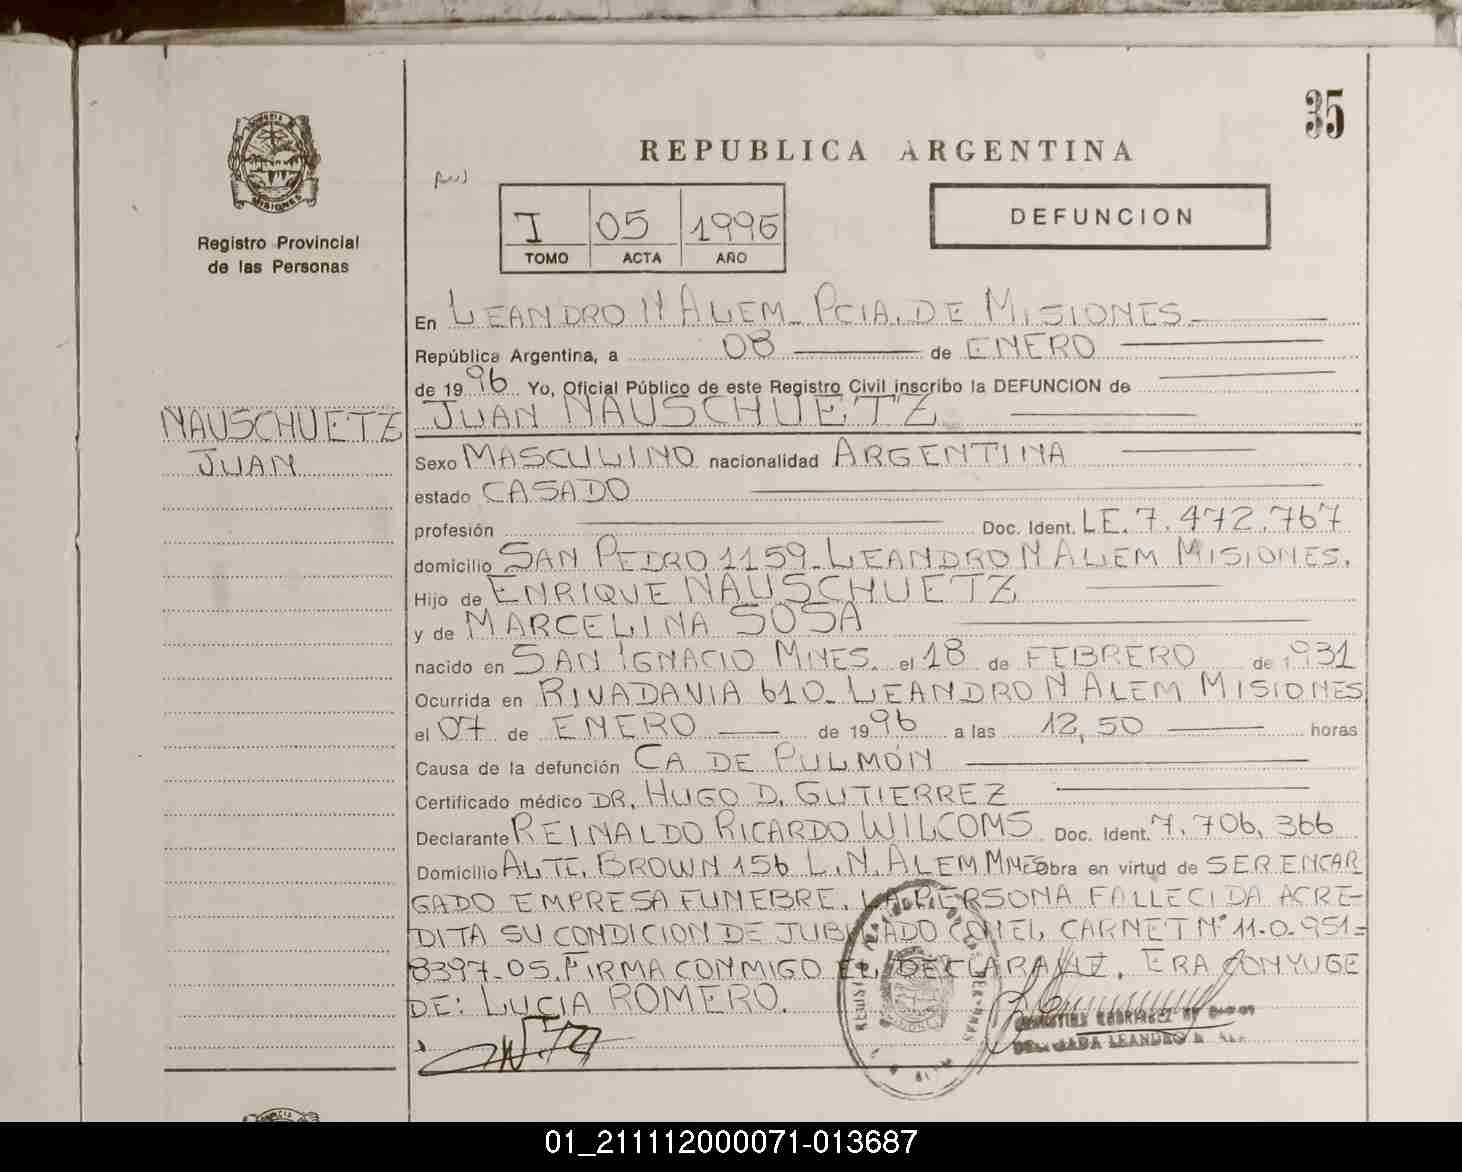 35
REPUBLICA ARGENTINA
MISIONES
Registro Provincial
de las Personas
I 05 1996
TOMO ACTA AÑO
DEFUNCION
En LEANDRO N ALEM_ PCIA. DE MISIONES
República Argentina, a 08 de ENERO
de 1996 Yo, Oficial Público de este Registro Civil inscribo la DEFUNCION de
NAUSCHUETZ
JUAN
JUAN NAUSCHUETZ
Sexo MASCULINO nacionalidad ARGENTINA
estado CASADO
profesión Doc. Ident. LE. 7.472.767
domicilio SAN PEDRO 1159_ LEANDRO N ALEM MISIONES.
Hijo de ENRIQUE NAUSCHUETZ
y de MARCELINA SOSA
nacido en SAN IGNACIO MNES. el 18 de FEBRERO de 1931
Ocurrida en RIVADAVIA 610_ LEANDRO N ALEM MISIONES
el 07 de ENERO de 1996 a las 12,50 horas
Causa de la defunción CA DE PULMÓN
Certificado médico DR. HUGO D. GUTIERREZ
Declarante REINALDO RICARDO WILCOMS Doc. Ident. 7.706.366
Domicilio ALTE. BROWN 156 L.N. ALEM MNES Obra en virtud de SER ENCAR
GADO EMPRESA FUNEBRE. LA PERSONA FALLECIDA ACRE-
DITA SU CONDICION DE JUBILADO CON EL CARNET N° 11-0-951=
8397-05. FIRMA CONMIGO EL DECLARANTE. ERA CONYUGE
DE: LUCIA ROMERO.
01_211112000071-013687